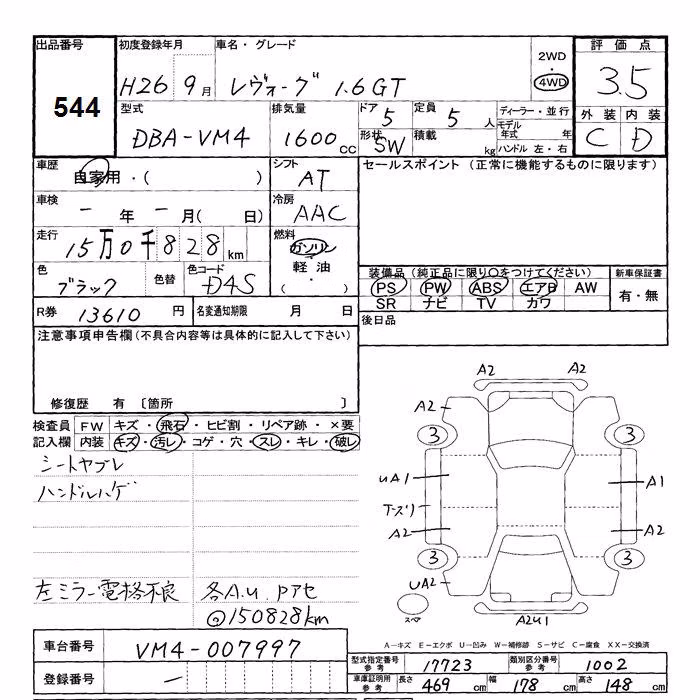 出品番号 初度登録年月 車名・グレード 評価点
544 H26 9月 レヴォーグ 1.6GT 2WD 4WD 3.5
型式 排気量 ドア 定員 ディーラー・並行 外装 内装
DBA-VM4 1600cc 5 5人 モデル年式 年 C D
形状 SW 積載 kg ハンドル 左・右
車歴 自家用・( ) シフト AT セールスポイント (正常に機能するものに限ります)
車検 ー年ー月( 日) 冷房 AAC
走行 15万0千828km 燃料 ガソリン
軽油
( ・ )
色 ブラック 色替 色コード D4S 装備品 (純正品に限り○をつけてください) 新車保証書
PS PW ABS エアB AW 有・無
SR ナビ TV カワ
R券 13610円 名変通知期限 月 日 後日品
注意事項申告欄(不具合内容等は具体的に記入して下さい)
修復歴 有 〔箇所 〕
検査員 FW キズ・飛石・ヒビ割・リペア跡・×要
記入欄 内装 キズ・汚レ・コゲ・穴・スレ・キレ・破レ
シートヤブレ
ハンドルハゲ
左ミラー電格不良 各A.U.Pアセ
@150828km
A2 A2
A2 A2
3 3
uA1 A1
A2 A2
3 3
UA2
スペア A2U1
A-キズ E-エクボ U-凹み W-補修跡 S-サビ C-腐食 XX-交換済
車台番号 VM4-007997
登録番号 ー
型式指定番号 参考 17723 類別区分番号 参考 1002
車庫証明用 参考 長さ 469cm 幅 178cm 高さ 148cm